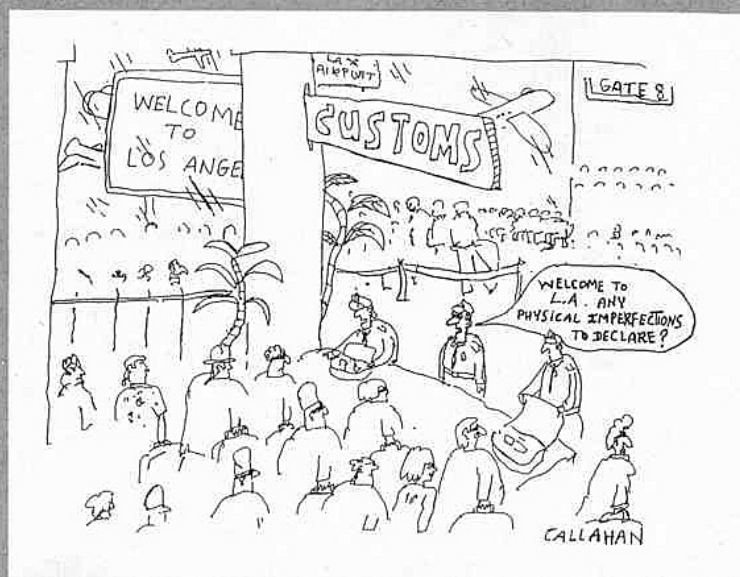 WELCOME
TO
LOS ANGE
LAX
AIRPORT
CUSTOMS
GATE 8
WELCOME TO
L.A. ANY
PHYSICAL IMPERFECTIONS
TO DECLARE?
CALLAHAN